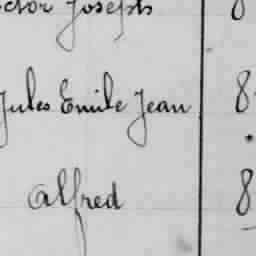 ctor Joseph 8
Jules Emile Jean 8
Alfred 8